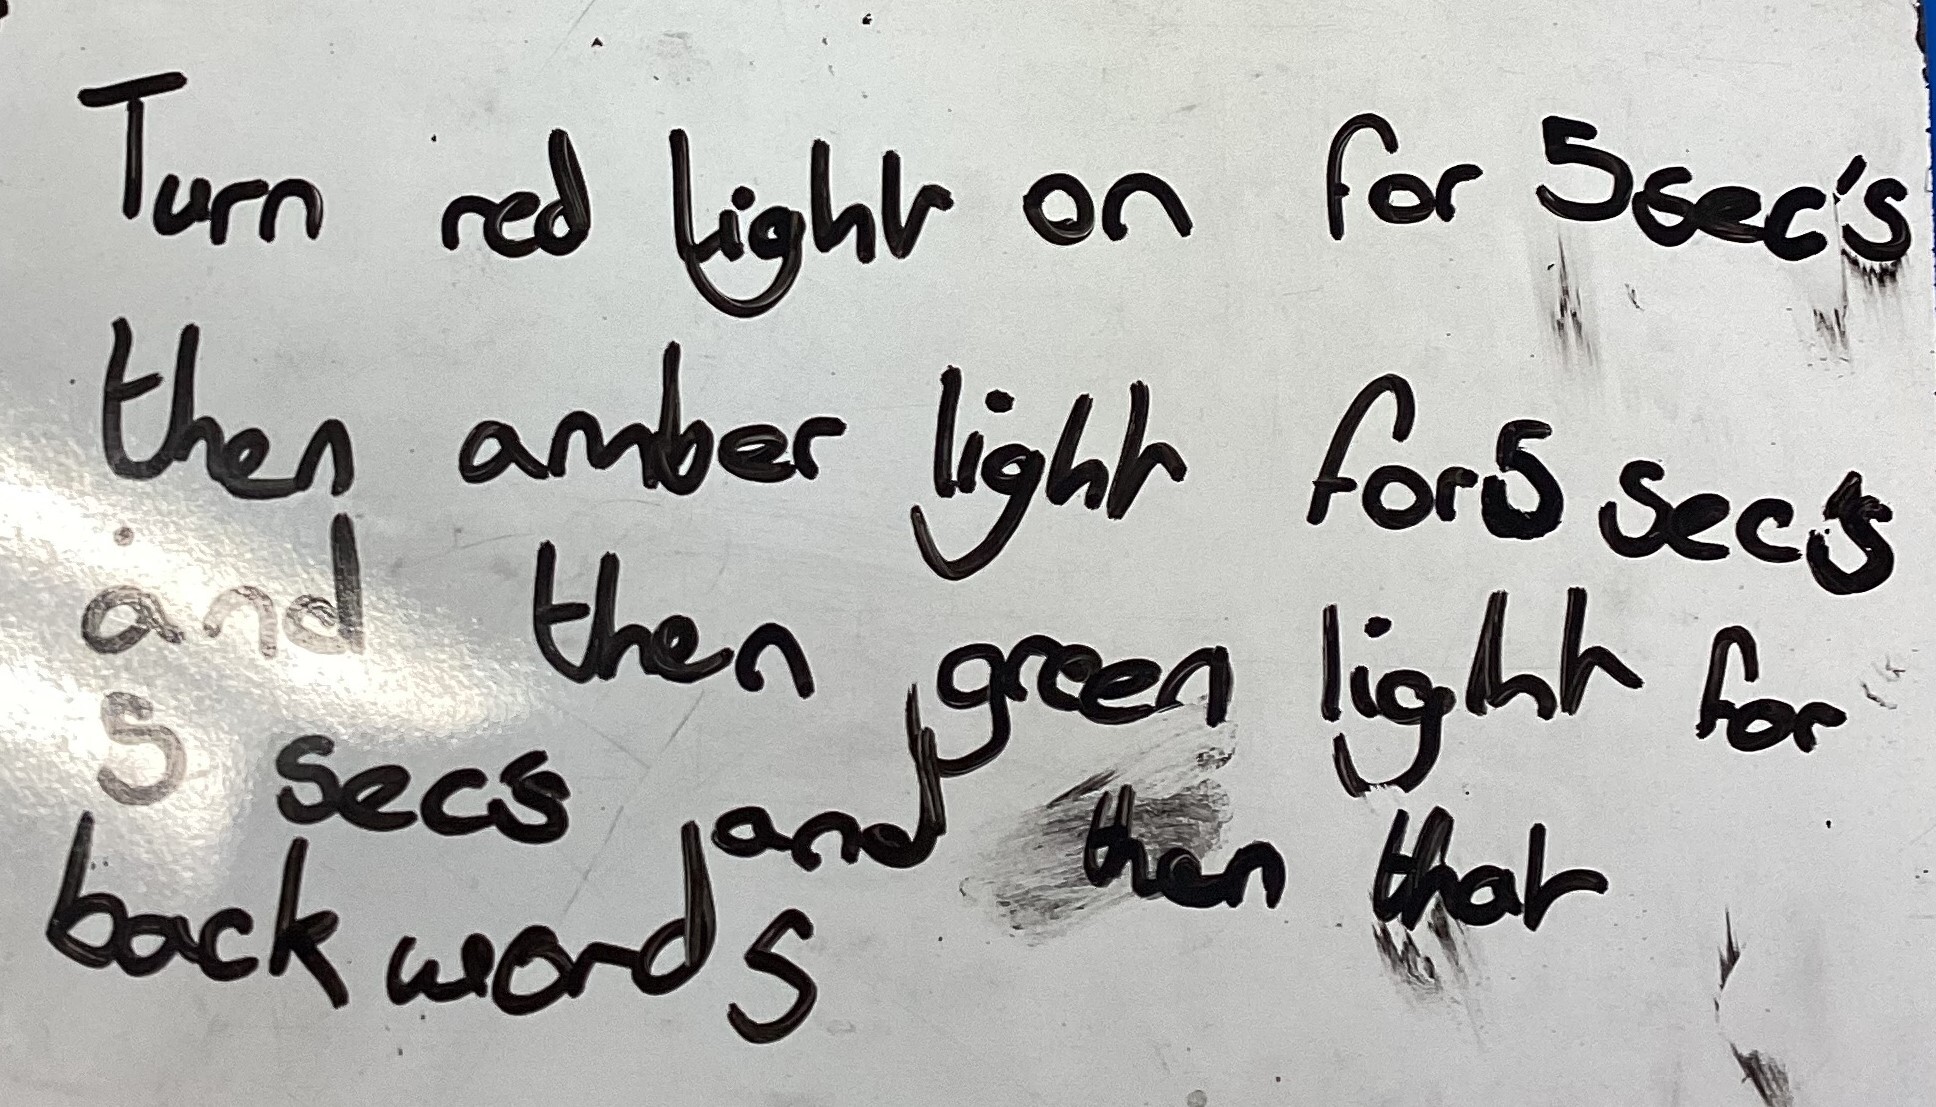 Turn red light on for 5 sec's
then amber light for 5 sec's
and then green light for
5 sec's and then that
back words